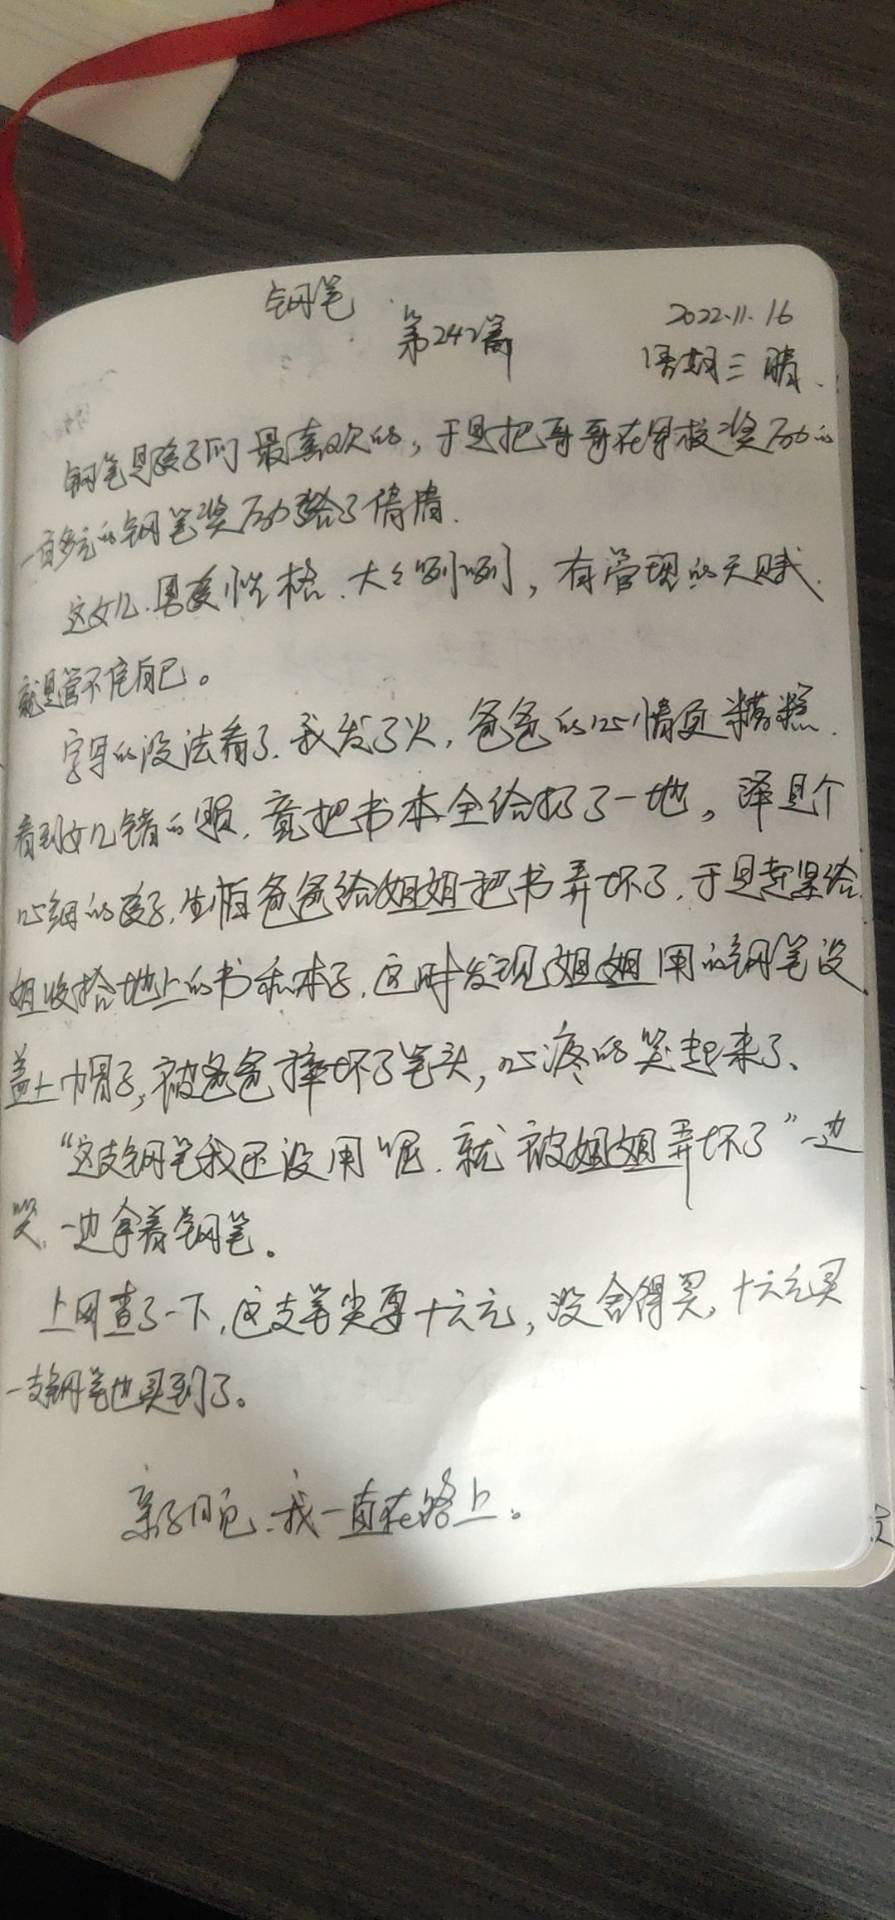 钢笔
第242篇
2022.11.16
星期三 晴.
钢笔是孩子们最喜欢的，于是把哥哥在学校奖励的
一百多元的钢笔奖励给了倩倩.
这女儿.男孩性格.大大咧咧，有管理的天赋.
就是管不住自己。
字写的没法看了.我发了火，爸爸的心情更糟糕.
看到女儿错的题，竟把书本全给扔了一地。泽是个
心细的孩子.生怕爸爸给姐姐把书弄坏了.于是赶紧给
姐收拾地上的书和本子.这时发现姐姐用的钢笔没
盖上帽子，被爸爸摔坏了笔头，心疼的哭起来了、
“这支钢笔我还没用呢.就被姐姐弄坏了”一边
哭、一边拿着钢笔。
上网查了一下，这支笔尖要十六元，没舍得买，十六元买
一支钢笔也买到了。
亲子日记.我一直在路上。